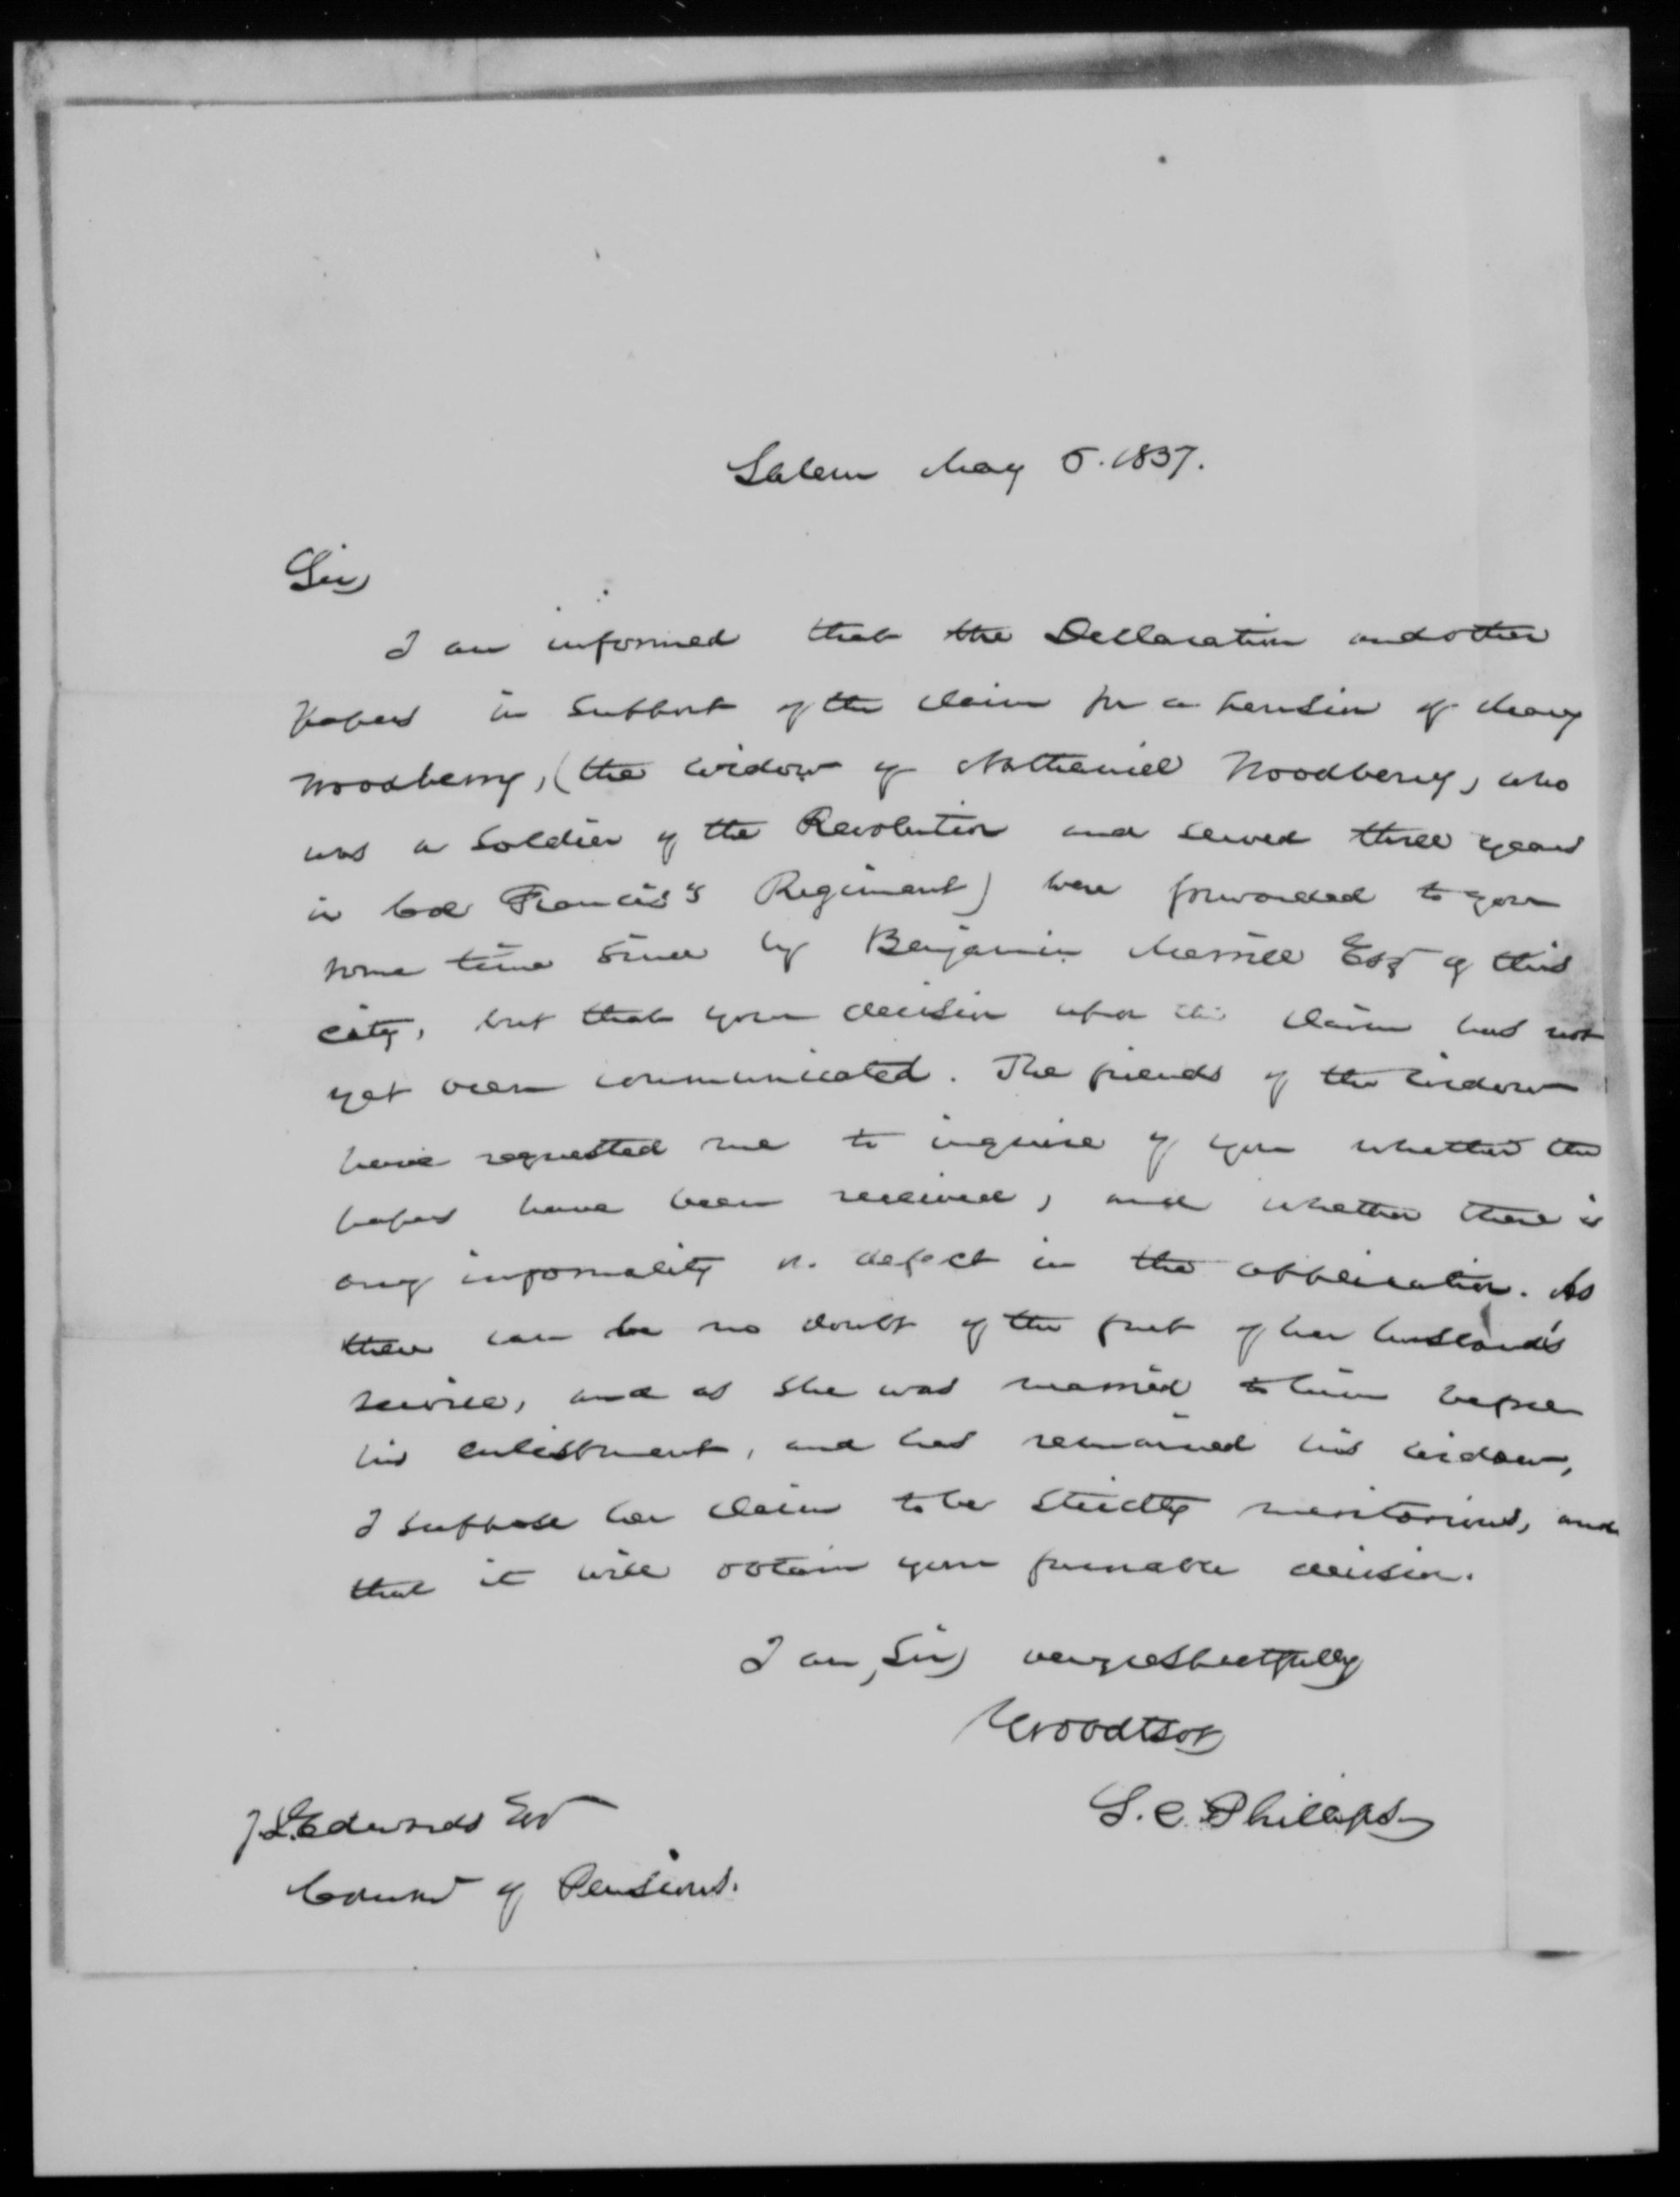 Salem May 5. 1837.
Sir,
I am informed that the Declaration and other
papers in support of the claim for a pension of Mary
Woodberry, (the widow of Nathaniel Woodberry, who
was a soldier of the Revolution and served three years
in Col Francis's Regiment) were forwarded to you
some time since by Benjamin Merrill Esq of this
city, but that your decision upon the claim has not
yet been communicated. The friends of the widow
have requested me to inquire of you whether the
papers have been received, and whether there is
any informality or defect in the application. As
there can be no doubt of the fact of her husband's
service, and as she was married to him before
his enlistment, and has remained his widow,
I suppose her claim to be strictly meritorious, and
that it will obtain your favorable decision.
I am, Sir, very respectfully
Yr obdt sevt
S. C. Phillips
J. L. Edwards Esq
Commr of Pensions.